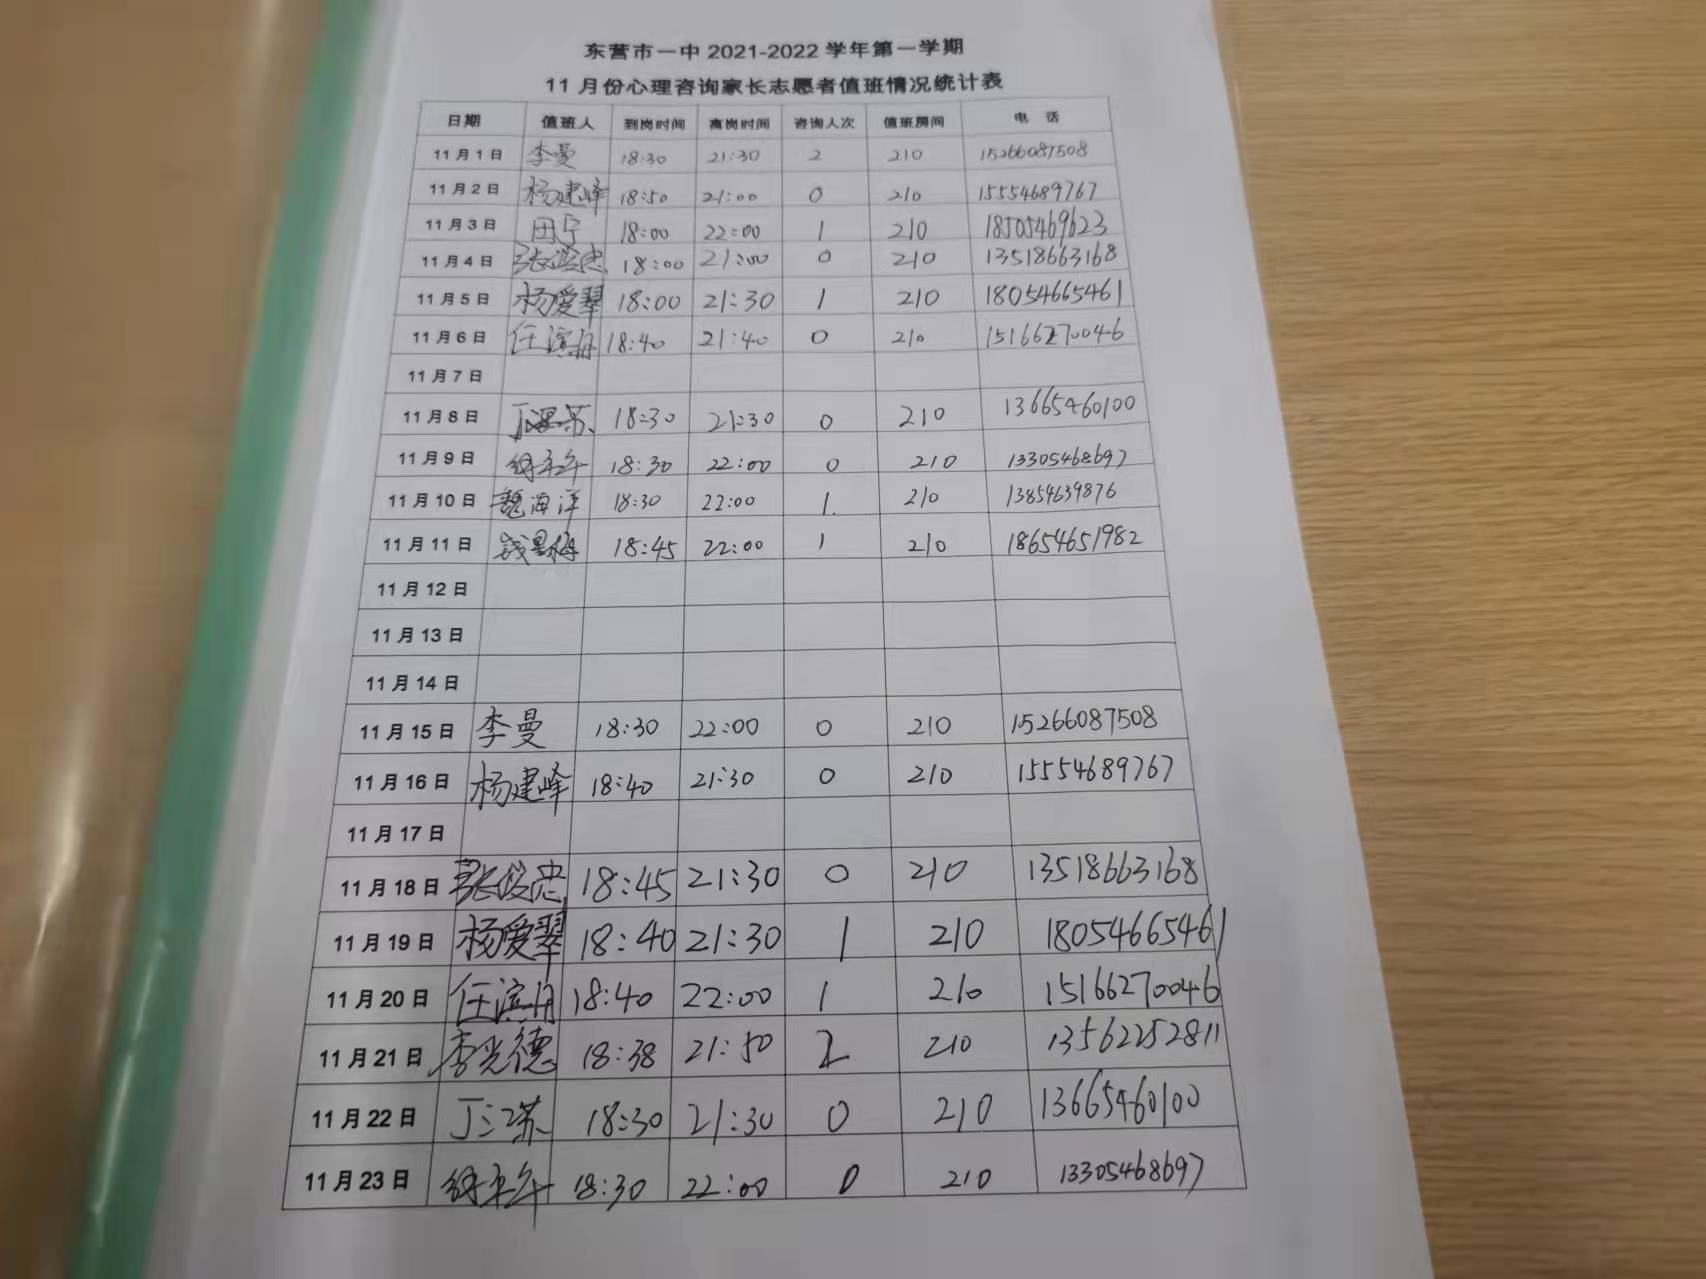 东营市一中 2021-2022 学年第一学期
11 月份心理咨询家长志愿者值班情况统计表
日期 值班人 到岗时间 离岗时间 咨询人次 值班房间 电 话
11月1日 李曼 18:30 21:30 2 210 15266087508
11月2日 杨建峰 18:50 21:00 0 210 15554689767
11月3日 田宁 18:00 22:00 1 210 18505469623
11月4日 张俊忠 18:00 21:00 0 210 13518663168
11月5日 杨爱翠 18:00 21:30 1 210 18054665461
11月6日 任滨舟 18:40 21:40 0 210 15166270046
11月7日
11月8日 18:30 21:30 0 210 13665460100
11月9日 18:30 22:00 0 210 13305468697
11月10日 魏海洋 18:30 22:00 1. 210 13854639876
11月11日 18:45 22:00 1 210 18654651982
11月12日
11月13日
11月14日
11月15日 李曼 18:30 22:00 0 210 15266087508
11月16日 杨建峰 18:40 21:30 0 210 15554689767
11月17日
11月18日 张俊忠 18:45 21:30 0 210 13518663168
11月19日 杨爱翠 18:40 21:30 1 210 18054665461
11月20日 任滨舟 18:40 22:00 1 210 15166270046
11月21日 李光德 18:38 21:50 2 210 13562252811
11月22日 18:30 21:30 0 210 13665460100
11月23日 18:30 22:00 0 210 13305468697